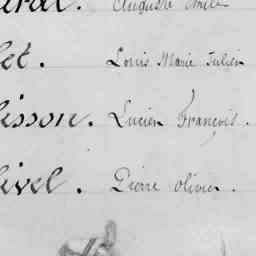 Auguste Emile
Louis Marie Julien
isson. Lucien François.
ivel. Pierre Olivier.